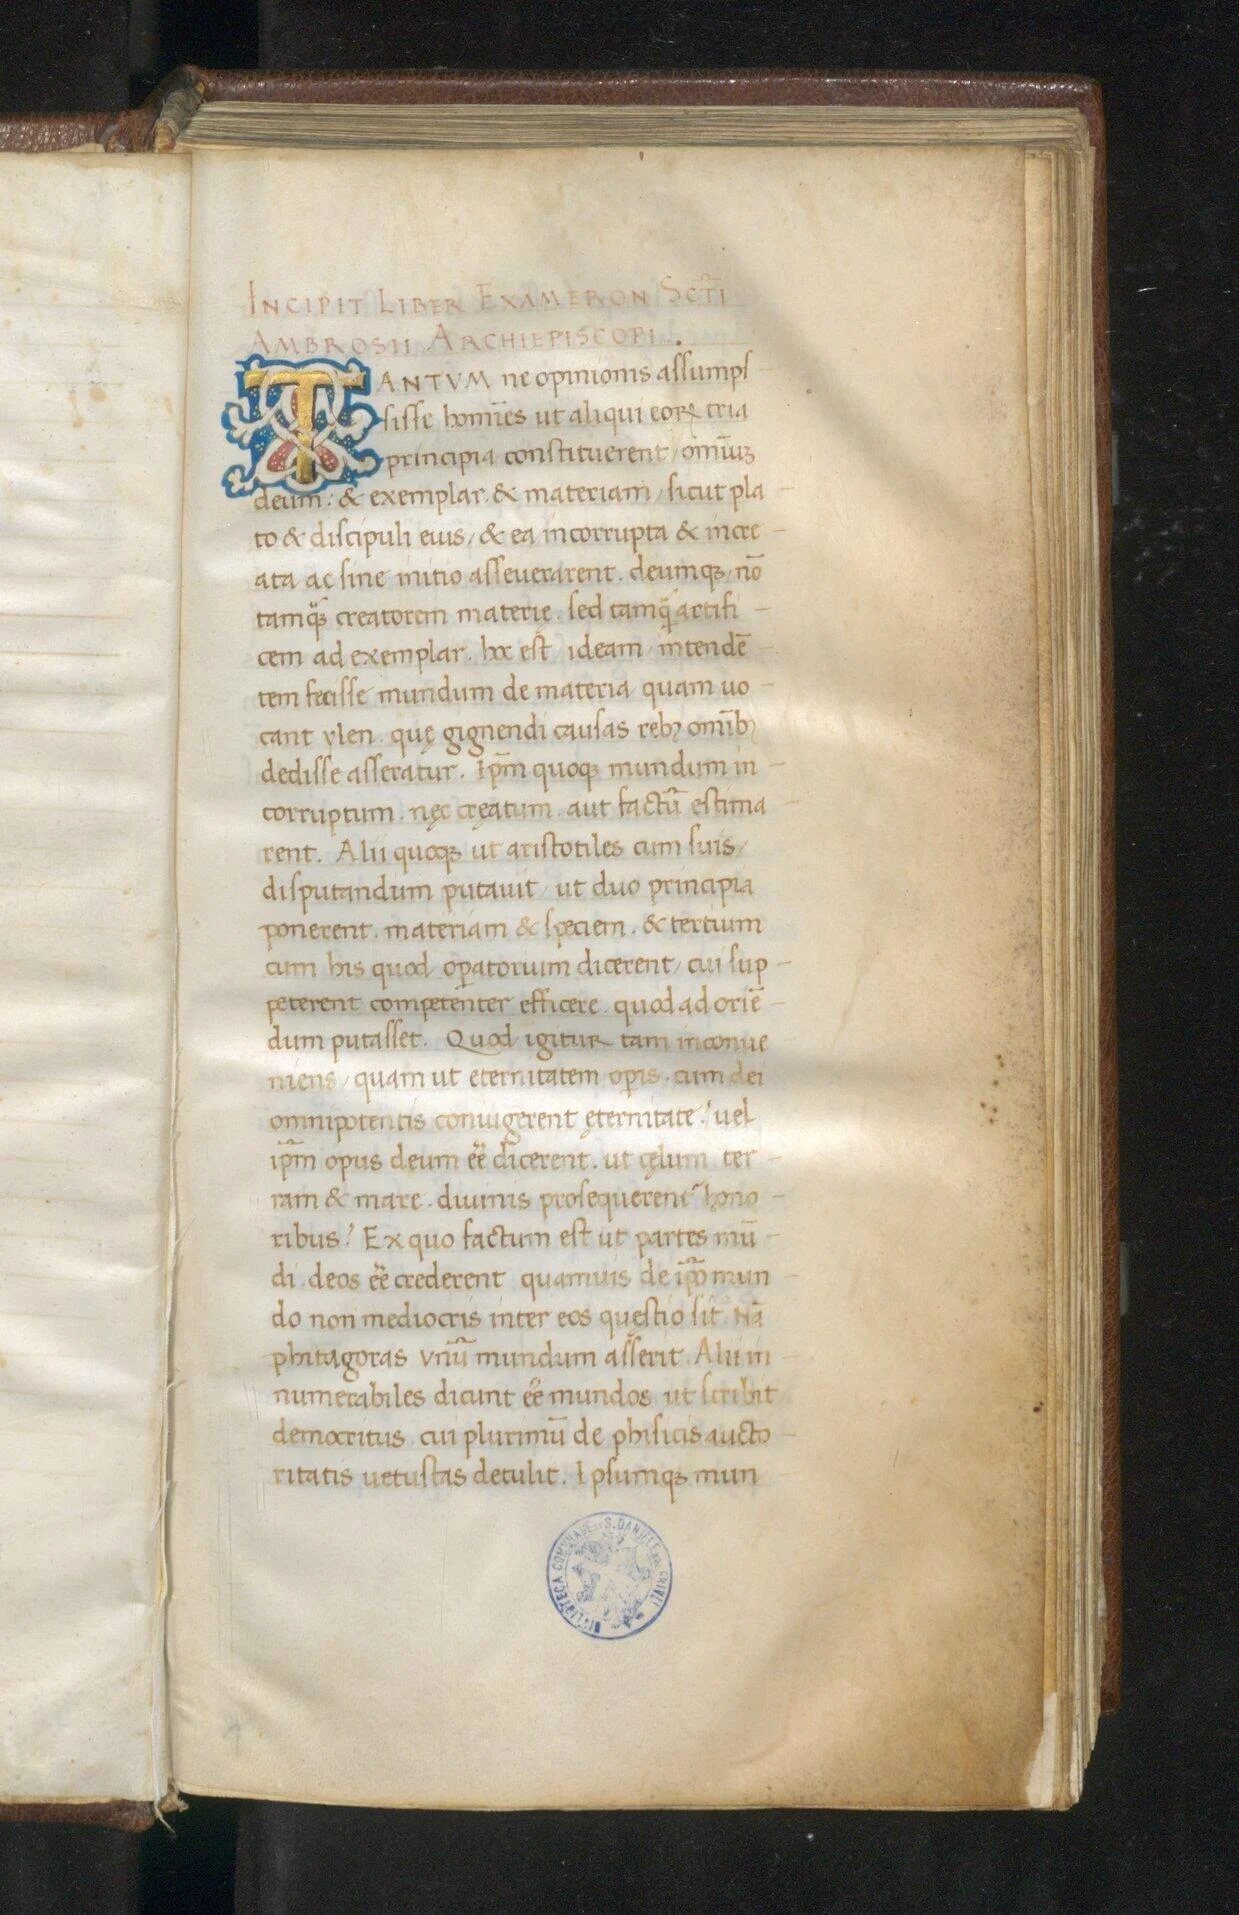 INCIPIT LIBER EXAMERON SCT̃I
AMBROSII ARCHIEPISCOPI.
TANTVM ne opinionis assumps
sisse homĩes ut aliqui eoꝝ tria
principia constituerent / omiũꝫ
deum: & exemplar. & materiam / sicut pla
to & discipuli eius / & ea incorrupta & incre
ata ac sine initio asseuerarent. deumqꝫ / nõ
tamqꝫ creatorem materię. sed tamq̃ artifi
cem ad exemplar. hoc est ideam / intendẽ
tem fecisse mundum de materia quam uo
cant ylen. quę gignendi causas rebꝫ omĩbꝫ
dedisse asseratur. Ip̃m quoqꝫ mundum in
corruptum. nęc cręatum. aut factũ estima
rent. Alii quoqꝫ ut aristotiles cum suis /
disputandum putauit / ut duo principia
ponerent. materiam & speciem. & tertium
cum his quod oꝑatorium dicerent / cui sup
peterent competenter efficere. quod ad oriẽ
dum putasset. Quod igitur tam inconue
niens / quam ut eternitatem oꝑis. cum dei
omnipotentis coniugerent ęternitate? uel
ip̃m opus deum eẽ dicerent. ut cęlum ter
ram & mare. diuinis prosequerent᷑ hono
ribus? Ex quo factum est ut partes mũ
di. deos eẽ crederent quamuis de ip̃o mun
do non mediocris inter eos quęstio sit. Nã
phitagoras vnũ mundum asserit. Alii in
numerabiles dicunt eẽ mundos ut scribit
democritus. cui plurimũ de phisicis aucto
ritatis uetustas detulit. Ipsumqꝫ mun
BIBLIOTECA COMUNALE DI S. DANIELE DEL FRIULI